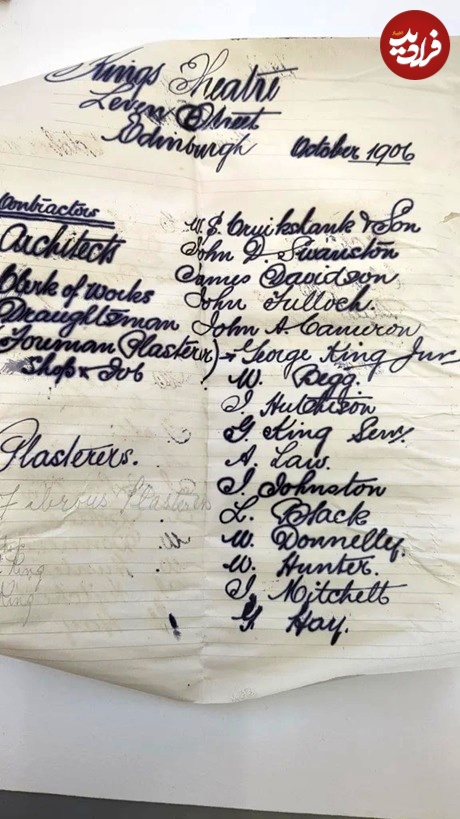 فرادید
Kings Theatre
Leven Street
Edinburgh
October 1906
Contractors W. S. Cruikshank & Son
Architects John D. Swanston
James Davidson
Clerk of Works John Tulloch.
Draughtsman John A Cameron
Foreman (Plasterer) George King Junr
Shop & Job W. Begg.
J Hutchison
Plasterers. G. King Senr.
A. Law.
J. Johnston
Fibrous Plasterers L. Black
W. Donnelly.
W. Hunter.
King J. Mitchell
King G. Hay.